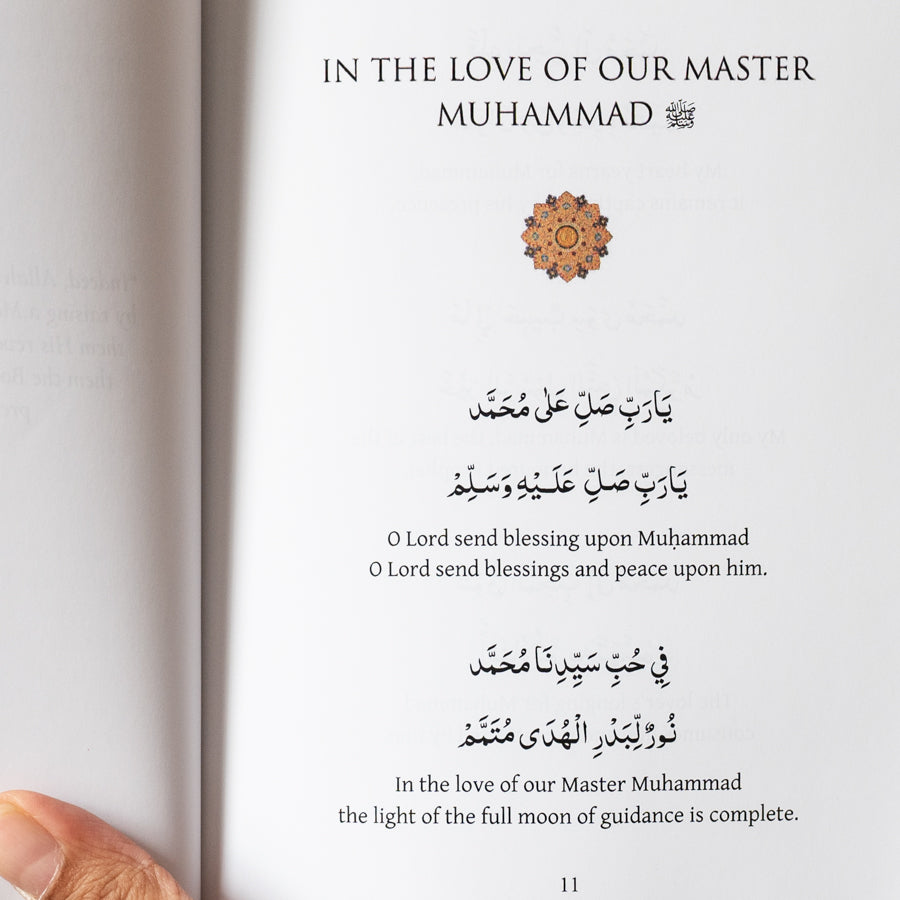 IN THE LOVE OF OUR MASTER
MUHAMMAD ﷺ
يَارَبِّ صَلِّ عَلٰى مُحَمَّد
يَارَبِّ صَلِّ عَلَـيْهِ وَسَـلِّمْ
O Lord send blessing upon Muḥammad
O Lord send blessings and peace upon him.
فِي حُبِّ سَيِّدِنَا مُحَمَّد
نُورٌ لِّبَدْرِ الْهُدَى مُتَمَّمْ
In the love of our Master Muhammad
the light of the full moon of guidance is complete.
11